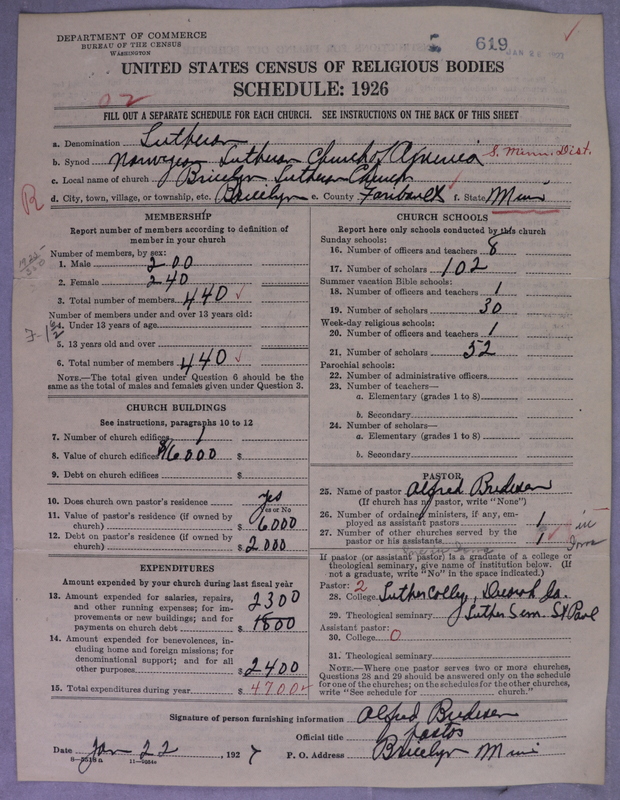 DEPARTMENT OF COMMERCE
BUREAU OF THE CENSUS
WASHINGTON
619
UNITED STATES CENSUS OF RELIGIOUS BODIES
SCHEDULE: 1926
02
FILL OUT A SEPARATE SCHEDULE FOR EACH CHURCH. SEE INSTRUCTIONS ON THE BACK OF THIS SHEET
a. Denomination Lutheran
b. Synod Norwegian Lutheran Church of America S. Minn. Dist.
c. Local name of church Bricelyn Lutheran Church
d. City, town, village, or township, etc. Bricelyn e. County Faribault f. State Minn
R
MEMBERSHIP
Report number of members according to definition of
member in your church
Number of members, by sex:
1. Male 200
2. Female 240
3. Total number of members 440
Number of members under and over 13 years old:
4. Under 13 years of age
5. 13 years old and over
6. Total number of members 440
NOTE.—The total given under Question 6 should be the
same as the total of males and females given under Question 3.
CHURCH BUILDINGS
See instructions, paragraphs 10 to 12
7. Number of church edifices 1
8. Value of church edifices $16000 $
9. Debt on church edifices $
10. Does church own pastor's residence yes
Yes or No
11. Value of pastor's residence (if owned by
church) $ 6000
12. Debt on pastor's residence (if owned by
church) $ 2000
EXPENDITURES
Amount expended by your church during last fiscal year
13. Amount expended for salaries, repairs,
and other running expenses; for im-
provements or new buildings; and for
payments on church debt $ 2300
1800
14. Amount expended for benevolences, in-
cluding home and foreign missions; for
denominational support; and for all
other purposes $ 2400
15. Total expenditures during year $ 4700
CHURCH SCHOOLS
Report here only schools conducted by this church
Sunday schools:
16. Number of officers and teachers 8
17. Number of scholars 102
Summer vacation Bible schools:
18. Number of officers and teachers 1
19. Number of scholars 30
Week-day religious schools:
20. Number of officers and teachers 1
21. Number of scholars 52
Parochial schools:
22. Number of administrative officers
23. Number of teachers—
a. Elementary (grades 1 to 8)
b. Secondary
24. Number of scholars—
a. Elementary (grades 1 to 8)
b. Secondary
PASTOR
25. Name of pastor Alfred Bredesen
(If church has no pastor, write "None")
26. Number of ordained ministers, if any, em-
ployed as assistant pastors 1
27. Number of other churches served by the
pastor or his assistants 1 in Iowa
If pastor (or assistant pastor) is a graduate of a college or
theological seminary, give name of institution below. (If
not a graduate, write "No" in the space indicated.)
Pastor: 2
28. College Luther College, Decorah Ia.
29. Theological seminary Luther Sem. St Paul
Assistant pastor:
30. College 0
31. Theological seminary
NOTE.—Where one pastor serves two or more churches,
Questions 28 and 29 should be answered only on the schedule
for one of the churches; on the schedules for the other churches,
write "See schedule for church."
Signature of person furnishing information Alfred Bredesen
Official title pastor
Date Jan 22, 1927 P. O. Address Bricelyn Minn
8—5518a 11—9264